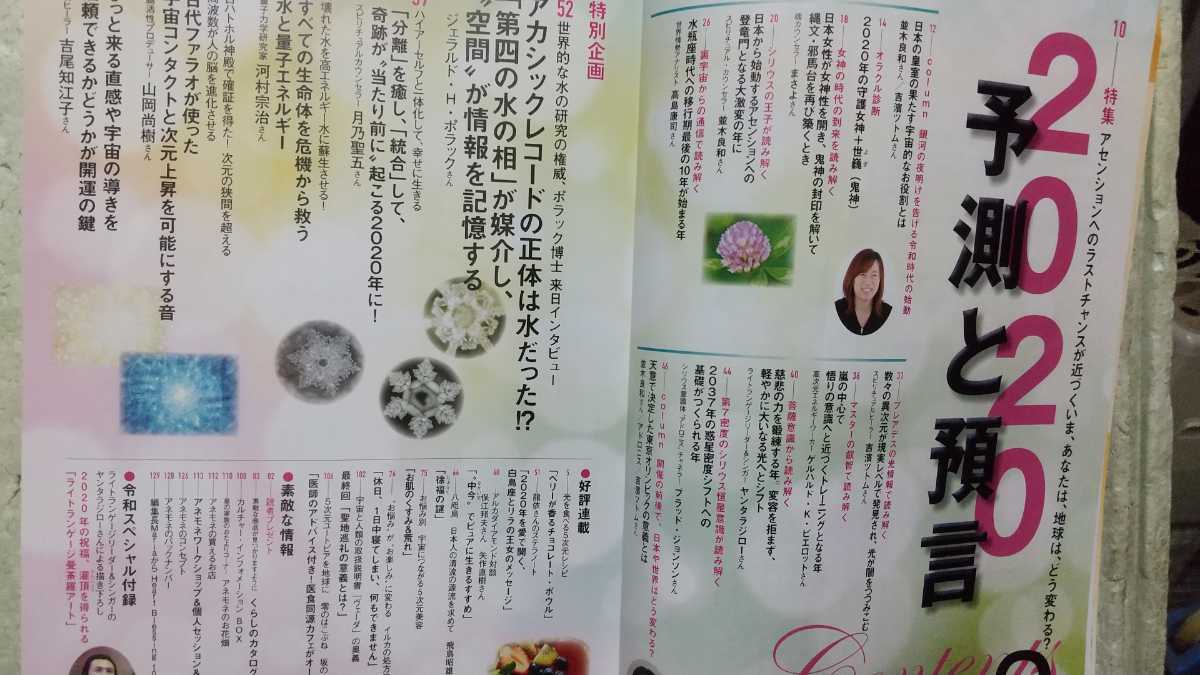 10 特集 アセンションへのラストチャンスが近づくいま、あなたは、地球は、どう変わる?
2020
予測と預言
12 column 銀河の夜明けを告げる令和時代の始動
日本の皇室の果たす宇宙的なお役割とは
並木良和さん、吉濱ツトムさん
14 オラクル診断
2020年の守護女神+世巍(鬼神)
18 女神の時代の到来を読み解く
日本女性が女神性を開き、鬼神の封印を解いて
縄文・邪馬台を再び築くとき
魂カウンセラー まさよさん
20 シリウスの王子が読み解く
日本から始動するアセンションへの
登竜門となる大激変の年に
スピリチュアル・カウンセラー 並木良和さん
26 裏宇宙からの通信で読み解く
水瓶座時代への移行期最後の10年が始まる年
世界情勢アナリスト 高島康司さん
31 プレアデスの光情報で読み解く
数々の異次元が現実レベルで発見され、光が闇をつつみこむ
スピリチュアルヒーラー 吉濱ツトムさん
36 マスターの叡智で読み解く
嵐の中心で
悟りの意識へと近づくトレーニングとなる年
高次元エネルギーワーカー ゲルハルド・K・ピエロットさん
40 菩薩意識から読み解く
慈悲の力を鍛練する年。変容を拒まず、
軽やかに大いなる光へとシフト
ライトランゲージリーダー&シンガー ヤンタラジローさん
44 第7密度のシリウス恒星意識が読み解く
2037年の惑星密度シフトへの
基礎がつくられる年
シリウス意識体「アドロニス」チャネラー ブラッド・ジョンソンさん
46 column 開催の前後で、日本や世界はどう変わる?
天意で決定した東京オリンピックの意義とは
並木良和さん、アドロニス、吉濱ツトムさん
Contents
特別企画
52 世界的な水の研究の権威、ポラック博士 来日インタビュー
アカシックレコードの正体は水だった!?
「第四の水の相」が媒介し、
“空間”が情報を記憶する
ジェラルド・H・ポラックさん
57 ハイアーセルフと一体化して、幸せに生きる
「分離」を癒し、「統合」して、
奇跡が“当たり前に”起こる2020年に!
スピリチュアルカウンセラー 月乃聖五さん
壊れた水を高エネルギー水に蘇生させる!
すべての生命体を危機から救う
水と量子エネルギー
量子力学研究家 河村宗治さん
古代ハトホル神殿で確証を得た! 次元の狭間を超える
周波数が人の脳を進化させる
古代ファラオが使った
宇宙コンタクトと次元上昇を可能にする音
脳活性プロデューサー 山岡尚樹さん
っと来る直感や宇宙の導きを
頼できるかどうかが開運の鍵
ヒーラー 吉尾知江子さん
●好評連載
5 光を食べる5次元レシピ
「ベリーが香るチョコレート・ボウル」
51 龍依さんのステラソノート
「2020年を愛で開く、
白鳥座とリラの王女のメッセージ」
60 アルカダイアモンド対談
保江邦夫さん 矢作直樹さん
「“中今”でピュアに生きるすすめ」
66 八咫烏 日本人の清流の源流を求めて 飛鳥昭雄
「徐福の謎」
75 お悩み別 宇宙につながる5次元美容
「お肌のくすみ&荒れ」
76 “お悩み”が“お楽しみ”に変わる イルカの処方
「休日、1日中寝てしまい、何もできません」
102 宇宙と人類の取扱説明書「ヴェーダ」の奥義
最終回「聖地巡礼の意義とは?」
106 5次元ユートピアを地球に 雫のはこぶね 坂の
「医師のアドバイス付き!医食同源カフェがオー
●素敵な情報
82 読者プレゼント
83 素敵な感謝が見つかりますように くらしのカタログ
103 カルチャー・インフォメーションBOX
110 星の家族のおたよりコーナー アネモネのお花畑
118 アネモネの買えるお店
111 アネモネワークショップ&個人セッション&
112 アネモネのコンセプト
126 アネモネのバックナンバー
128
129 編集長MaaaからHeart Blessing
●令和スペシャル付録
ライトランゲージリーダー&シンガーの
ヤンタラジローさんによる描き下ろし
2020年の祝福、灌頂を得られる
「ライトランゲージ曼荼羅アート」